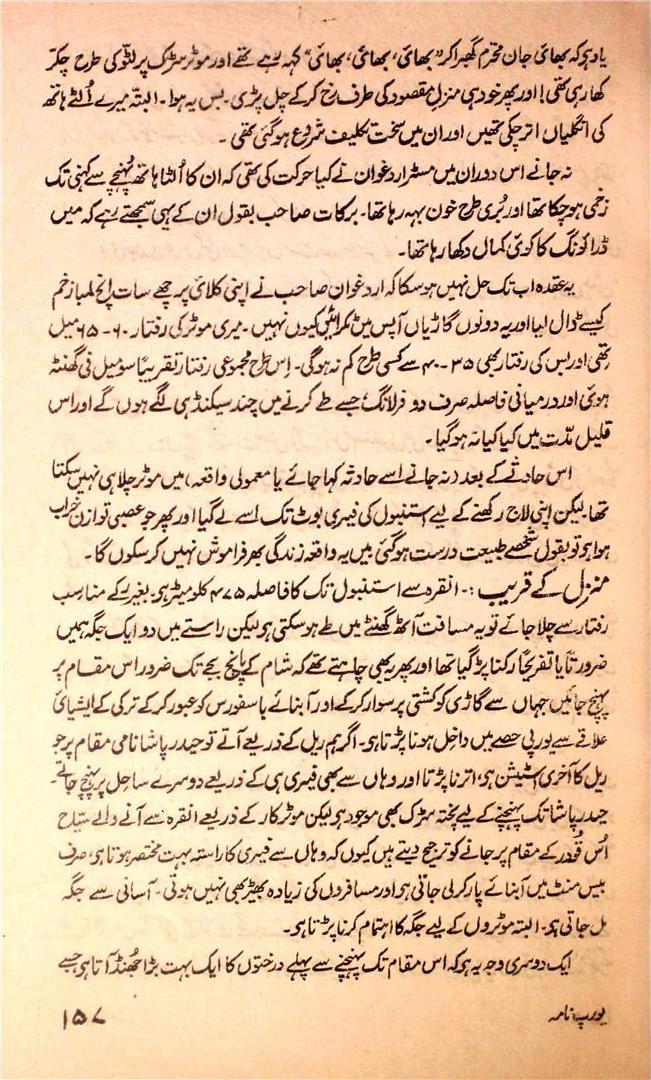 یاد ہی کہ بھائی جان محترم گھبرا کر "بھائی، بھائی، بھائی" کہہ رہے تھے اور موٹر سڑک پر لٹّو کی طرح چکّر
کھا رہی تھی! اور پھر خود ہی منزلِ مقصود کی طرف رخ کر کے چل پڑی۔ بس یہ ہوا۔ البتہ میرے اُلٹے ہاتھ
کی انگلیاں اتر چکی تھیں اور ان میں سخت تکلیف شروع ہو گئی تھی۔
نہ جانے اس دوران میں مسٹر اردغوان نے کیا حرکت کی تھی کہ ان کا اُلٹا ہاتھ پُہنچے سے کُہنی تک
زخمی ہو چکا تھا اور بُری طرح خون بہہ رہا تھا۔ برکات صاحب بقول ان کے یہی سمجھتے رہے کہ میں
ڈرائونگ کا کوئی کمال دکھا رہا تھا۔
یہ عقدہ اب تک حل نہیں ہو سکا کہ اردغوان صاحب نے اپنی کلائی پر چھے سات اِنچ لمبا زخم
کیسے ڈال لیا اور یہ دونوں گاڑیاں آپس میں ٹکرائیں کیوں نہیں۔ میری موٹر کی رفتار ۶۰۔۶۵ میل
تھی اور بس کی رفتار بھی ۳۵۔۴۰ سے کسی طرح کم نہ ہو گی۔ اِس طرح مجموعی رفتار تقریبًا سو میل فی گھنٹہ
ہوئی اور درمیانی فاصلہ صرف دو فرلانگ، جسے طے کرنے میں چند سیکنڈ ہی لگے ہوں گے اور اس
قلیل مدّت میں کیا کیا نہ ہو گیا۔
اس حادثے کے بعد (نہ جانے اسے حادثہ کہا جائے یا معمولی واقعہ) میں موٹر چلا ہی نہیں سکتا
تھا۔ لیکن اپنی لاج رکھنے کے لیے استنبول کی فیری بوٹ تک اسے لے گیا اور پھر جو عصبی توازن خراب
ہوا ہو تو بقول شخصے طبیعت درست ہو گئی۔ میں یہ واقعہ زندگی بھر فراموش نہیں کر سکوں گا۔
منزل کے قریب :۔ انقرہ سے استنبول تک کا فاصلہ ۴۷۵ کلو میٹر ہی۔ بغیر رُکے مناسب
رفتار سے چلا جائے تو یہ مسافت آٹھ گھنٹے میں طے ہو سکتی ہی لیکن راستے میں دو ایک جگہ ہمیں
ضرورتًا یا تفریحًا رکنا پڑ گیا تھا اور پھر یہ بھی چاہتے تھے کہ شام کے پانچ بجے تک ضرور اس مقام پر
پہنچ جائیں جہاں سے گاڑی کو کشتی پر سوار کر کے اور آبنائے باسفورس کو عبور کر کے ترکی کے ایشیائی
علاقے سے یورپی حصے میں داخل ہونا پڑتا ہی۔ اگر ہم ریل کے ذریعے آتے تو حیدر پاشا نامی مقام پر جو
ریل کا آخری اسٹیشن ہی، اترنا پڑتا اور وہاں سے بھی فیری ہی کے ذریعے دوسرے ساحل پر پہنچ جاتے۔
حیدر پاشا تک پہنچنے کے لیے پختہ سڑک بھی موجود ہی لیکن موٹر کار کے ذریعے انقرہ سے آنے والے سیّاح
اُس قُودر کے مقام پر جانے کو ترجیح دیتے ہیں کیوں کہ وہاں سے فیری کا راستہ بہت مختصر ہوتا ہی، صرف
بیس منٹ میں آبنائے پار کر لی جاتی ہی اور مسافروں کی زیادہ بھیڑ بھی نہیں ہوتی۔ آسانی سے جگہ
مل جاتی ہی۔ البتہ موٹروں کے لیے جگہ کا اہتمام کرنا پڑتا ہی۔
ایک دوسری وجہ یہ ہی کہ اس مقام تک پہنچنے سے پہلے درختوں کا ایک بہت بڑا جُھنڈ آتا ہی جسے
یورپ نامہ
۱۵۷